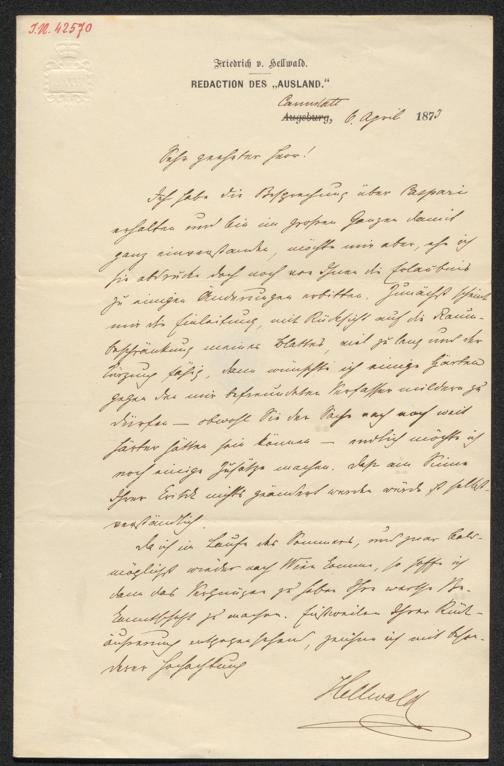 J.N. 42570
Friedrich v. Hellwald.
REDACTION DES „AUSLAND.“
Cannstatt
Augsburg, 6. April 1873
Sehr geehrter Herr!
Ich habe die Besprechung über Caspari
erhalten und bin im großen Ganzen damit
ganz einverstanden, möchte mir aber, ehe ich
sie abdrucke doch noch von Ihnen die Erlaubnis
zu einigen Änderungen erbitten. Zunächst scheint
mir die Einleitung, mit Rücksicht auf die Raum-
beschränkung meines Blattes, viel zu lang und der
Kürzung fähig, dann wünschte ich einige Härten
gegen den mir befreundeten Verfasser mildern zu
dürfen — obwohl Sie der Sache nach noch weit
härter hätten sein können — endlich möchte ich
noch einige Zusätze machen. Daß am Sinne
Ihrer Kritik nichts geändert werden würde ist selbst-
verständlich.
Da ich im Laufe des Sommers, und zwar bald-
möglichst wieder nach Wien komme, so hoffe ich
dann das Vergnügen zu haben Ihre werthe Be-
kanntschaft zu machen. Einstweilen Ihrer Rück-
äußerung entgegensehend, zeichne ich mit beson-
derer Hochachtung
Hellwald